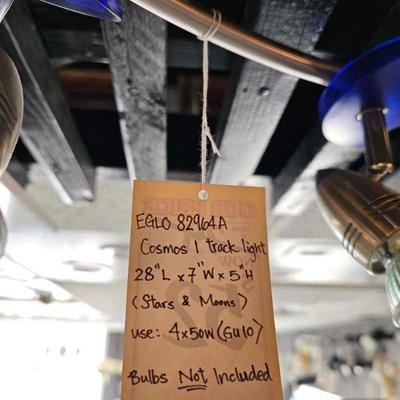 EGLO 82964A
Cosmos 1 track light
28"L x 7"W x 5"H
(Stars & Moons)
use: 4x50W (GU10)
Bulbs Not Included